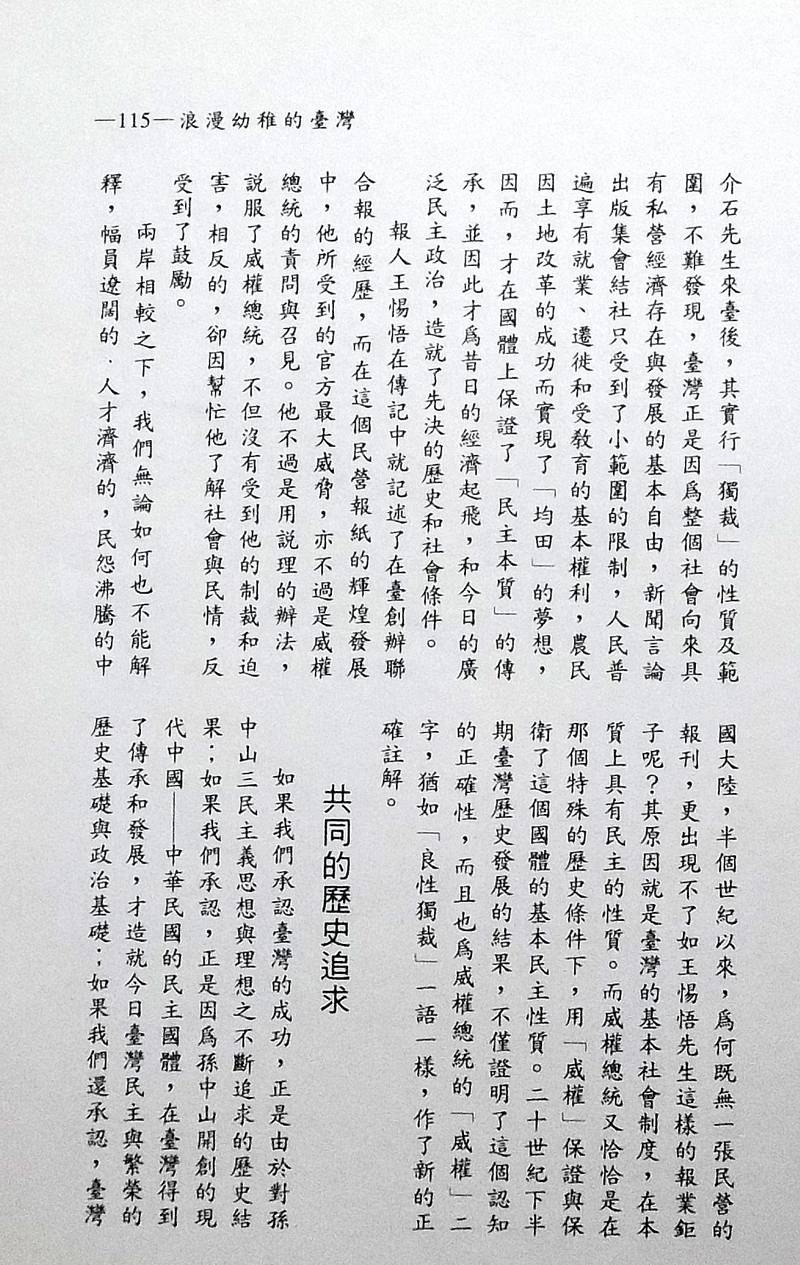 —115—浪漫幼稚的臺灣
介石先生來臺後，其實行「獨裁」的性質及範
圍，不難發現，臺灣正是因爲整個社會向來具
有私營經濟存在與發展的基本自由，新聞言論
出版集會結社只受到了小範圍的限制，人民普
遍享有就業、遷徙和受教育的基本權利，農民
因土地改革的成功而實現了「均田」的夢想，
因而，才在國體上保證了「民主本質」的傳
承，並因此才爲昔日的經濟起飛，和今日的廣
泛民主政治，造就了先決的歷史和社會條件。
報人王惕悟在傳記中就記述了在臺創辦聯
合報的經歷，而在這個民營報紙的輝煌發展
中，他所受到的官方最大威脅，亦不過是威權
總統的責問與召見。他不過是用説理的辦法，
説服了威權總統，不但沒有受到他的制裁和迫
害，相反的，卻因幫忙他了解社會與民情，反
受到了鼓勵。
兩岸相較之下，我們無論如何也不能解
釋，幅員遼闊的．人才濟濟的，民怨沸騰的中
國大陸，半個世紀以來，爲何既無一張民營的
報刊，更出現不了如王惕悟先生這樣的報業鉅
子呢？其原因就是臺灣的基本社會制度，在本
質上具有民主的性質。而威權總統又恰恰是在
那個特殊的歷史條件下，用「威權」保證與保
衛了這個國體的基本民主性質。二十世紀下半
期臺灣歷史發展的結果，不僅證明了這個認知
的正確性，而且也爲威權總統的「威權」二
字，猶如「良性獨裁」一語一樣，作了新的正
確註解。
共同的歷史追求
如果我們承認臺灣的成功，正是由於對孫
中山三民主義思想與理想之不斷追求的歷史結
果；如果我們承認，正是因爲孫中山開創的現
代中國——中華民國的民主國體，在臺灣得到
了傳承和發展，才造就今日臺灣民主與繁榮的
歷史基礎與政治基礎；如果我們還承認，臺灣